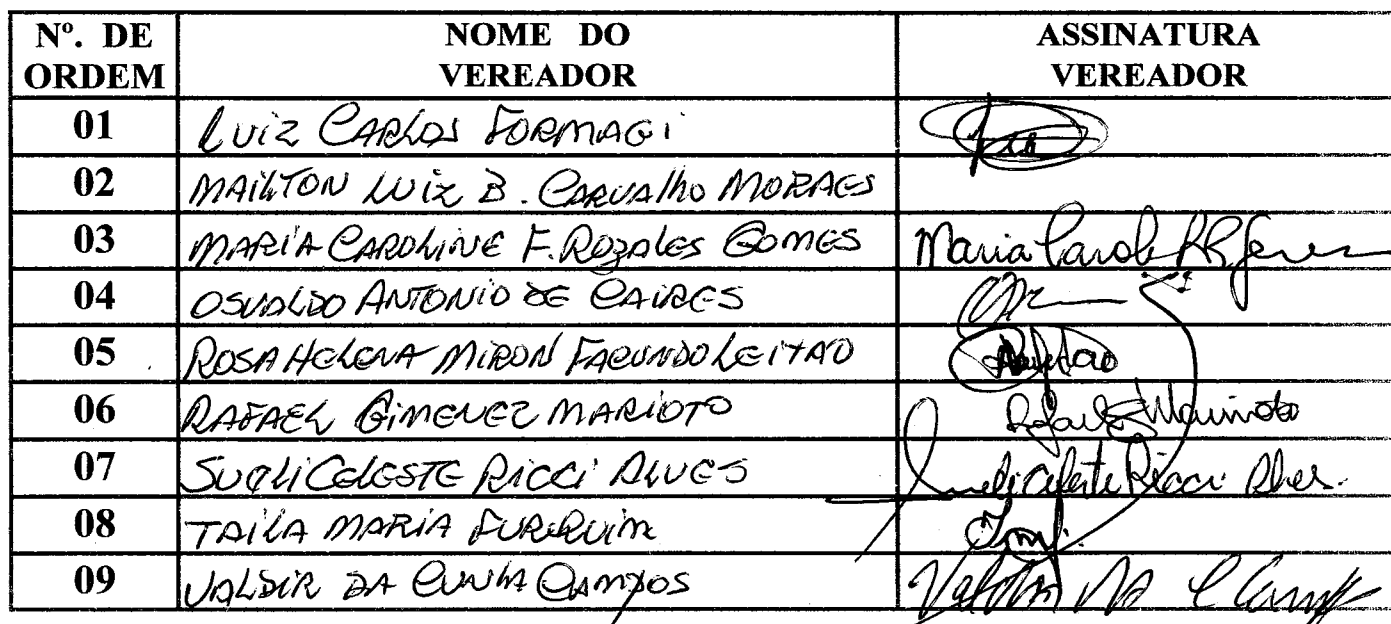 Nº. DE ORDEM NOME DO VEREADOR ASSINATURA VEREADOR
01 LUIZ CARLOS FORMAGI
02 MAILTON LUIZ B. CARVALHO MORAES
03 MARIA CAROLINE F. ROZALES GOMES Maria Carol
04 OSVALDO ANTONIO DE CAIRES
05 ROSA HELENA MIRON FACUNDO LEITAO
06 RAFAEL GIMENEZ MARIOTO Rafael
07 SUELI CELESTE RICCI ALVES Sueli Celeste Ricci Alves.
08 TAILA MARIA FURQUIM
09 VALDIR DA CUNHA CAMPOS